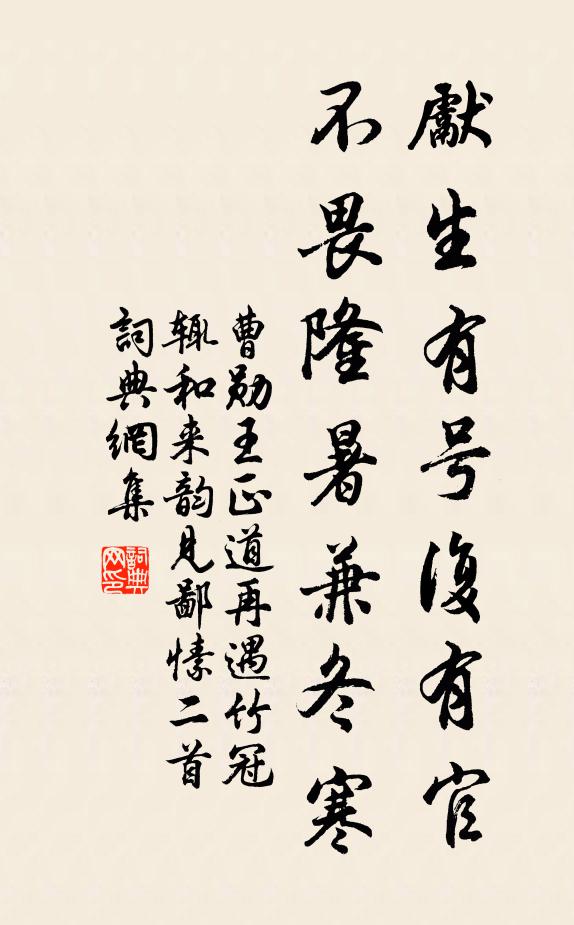 獻生有号復有官
不畏隆暑兼冬寒
曹勋王正道再遇竹冠
辄和来韵见鄙愫二首
詞典網集
詞典网印